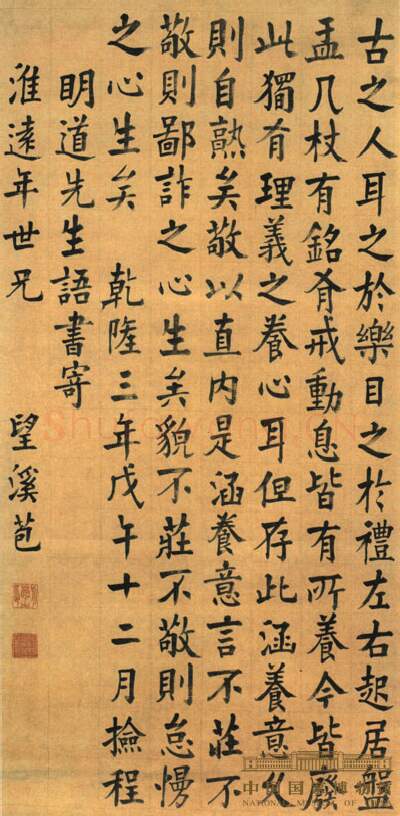 古之人耳之於樂目之於禮左右起居盤
盂几杖有銘有戒動息皆有所養今皆廢
此獨有理義之養心耳但存此涵養意久
則自熟矣敬以直内是涵養意言不莊不
敬則鄙詐之心生矣貌不莊不敬則怠慢
之心生矣 乾隆三年戊午十二月撿程
明道先生語書寄
淮遠年世兄 望溪苞
中國国家博物館
NATIONAL MUSEUM OF CHINA